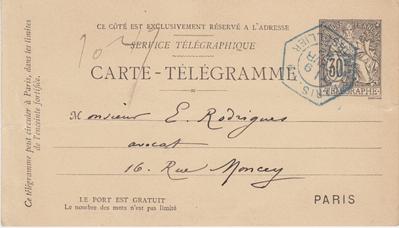 CE CÔTÉ EST EXCLUSIVEMENT RÉSERVÉ A L'ADRESSE
SERVICE TÉLÉGRAPHIQUE
CARTE-TÉLÉGRAMME
30
TÉLÉGRAPHE
PARIS
Monsieur E. Rodrigues
avocat
16. Rue Moncey
LE PORT EST GRATUIT
Le nombre des mots n'est pas limité
PARIS
Ce télégramme peut circuler à Paris, dans les limites
de l'enceinte fortifiée.